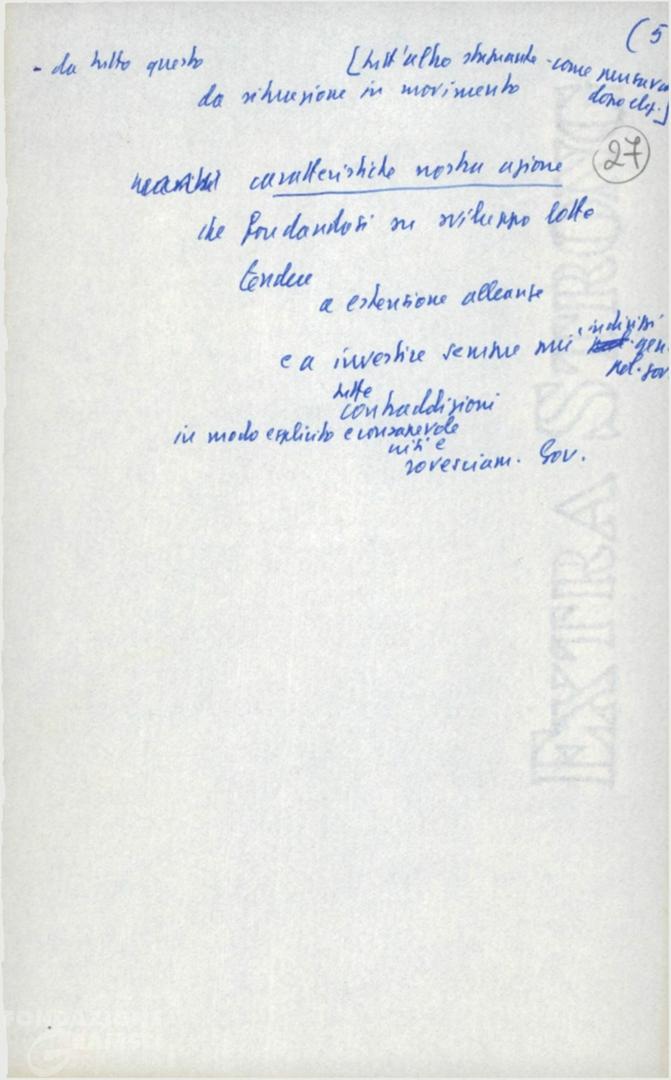 (5
- da tutto questo [tutt'altro stagnante - come pensavano
dopo elez.]
da situazione in movimento
27
caratteristiche nostra azione
che fondandosi su sviluppo lotte
tende
a estensione alleanze
e a investire sempre più indirizzi
gen.
pol. gov.
tutte
contraddizioni
in modo esplicito e consapevole
crisi e
rovesciam. Gov.
EXTRA STRONG
FONDAZIONE
GRAMSCI